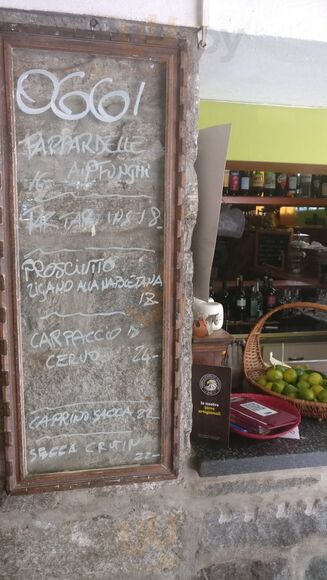 OGGI
PAPPARDELLE
16- AI FUNGHI
TARTAR 18-
PROSCIUTTO
ALLA NAPOLETANA
18-
CARPACCIO DI
CERVO 24-
CAPRINO SACCA 22-
SACCA 22-
le nostre
birre
artigianali